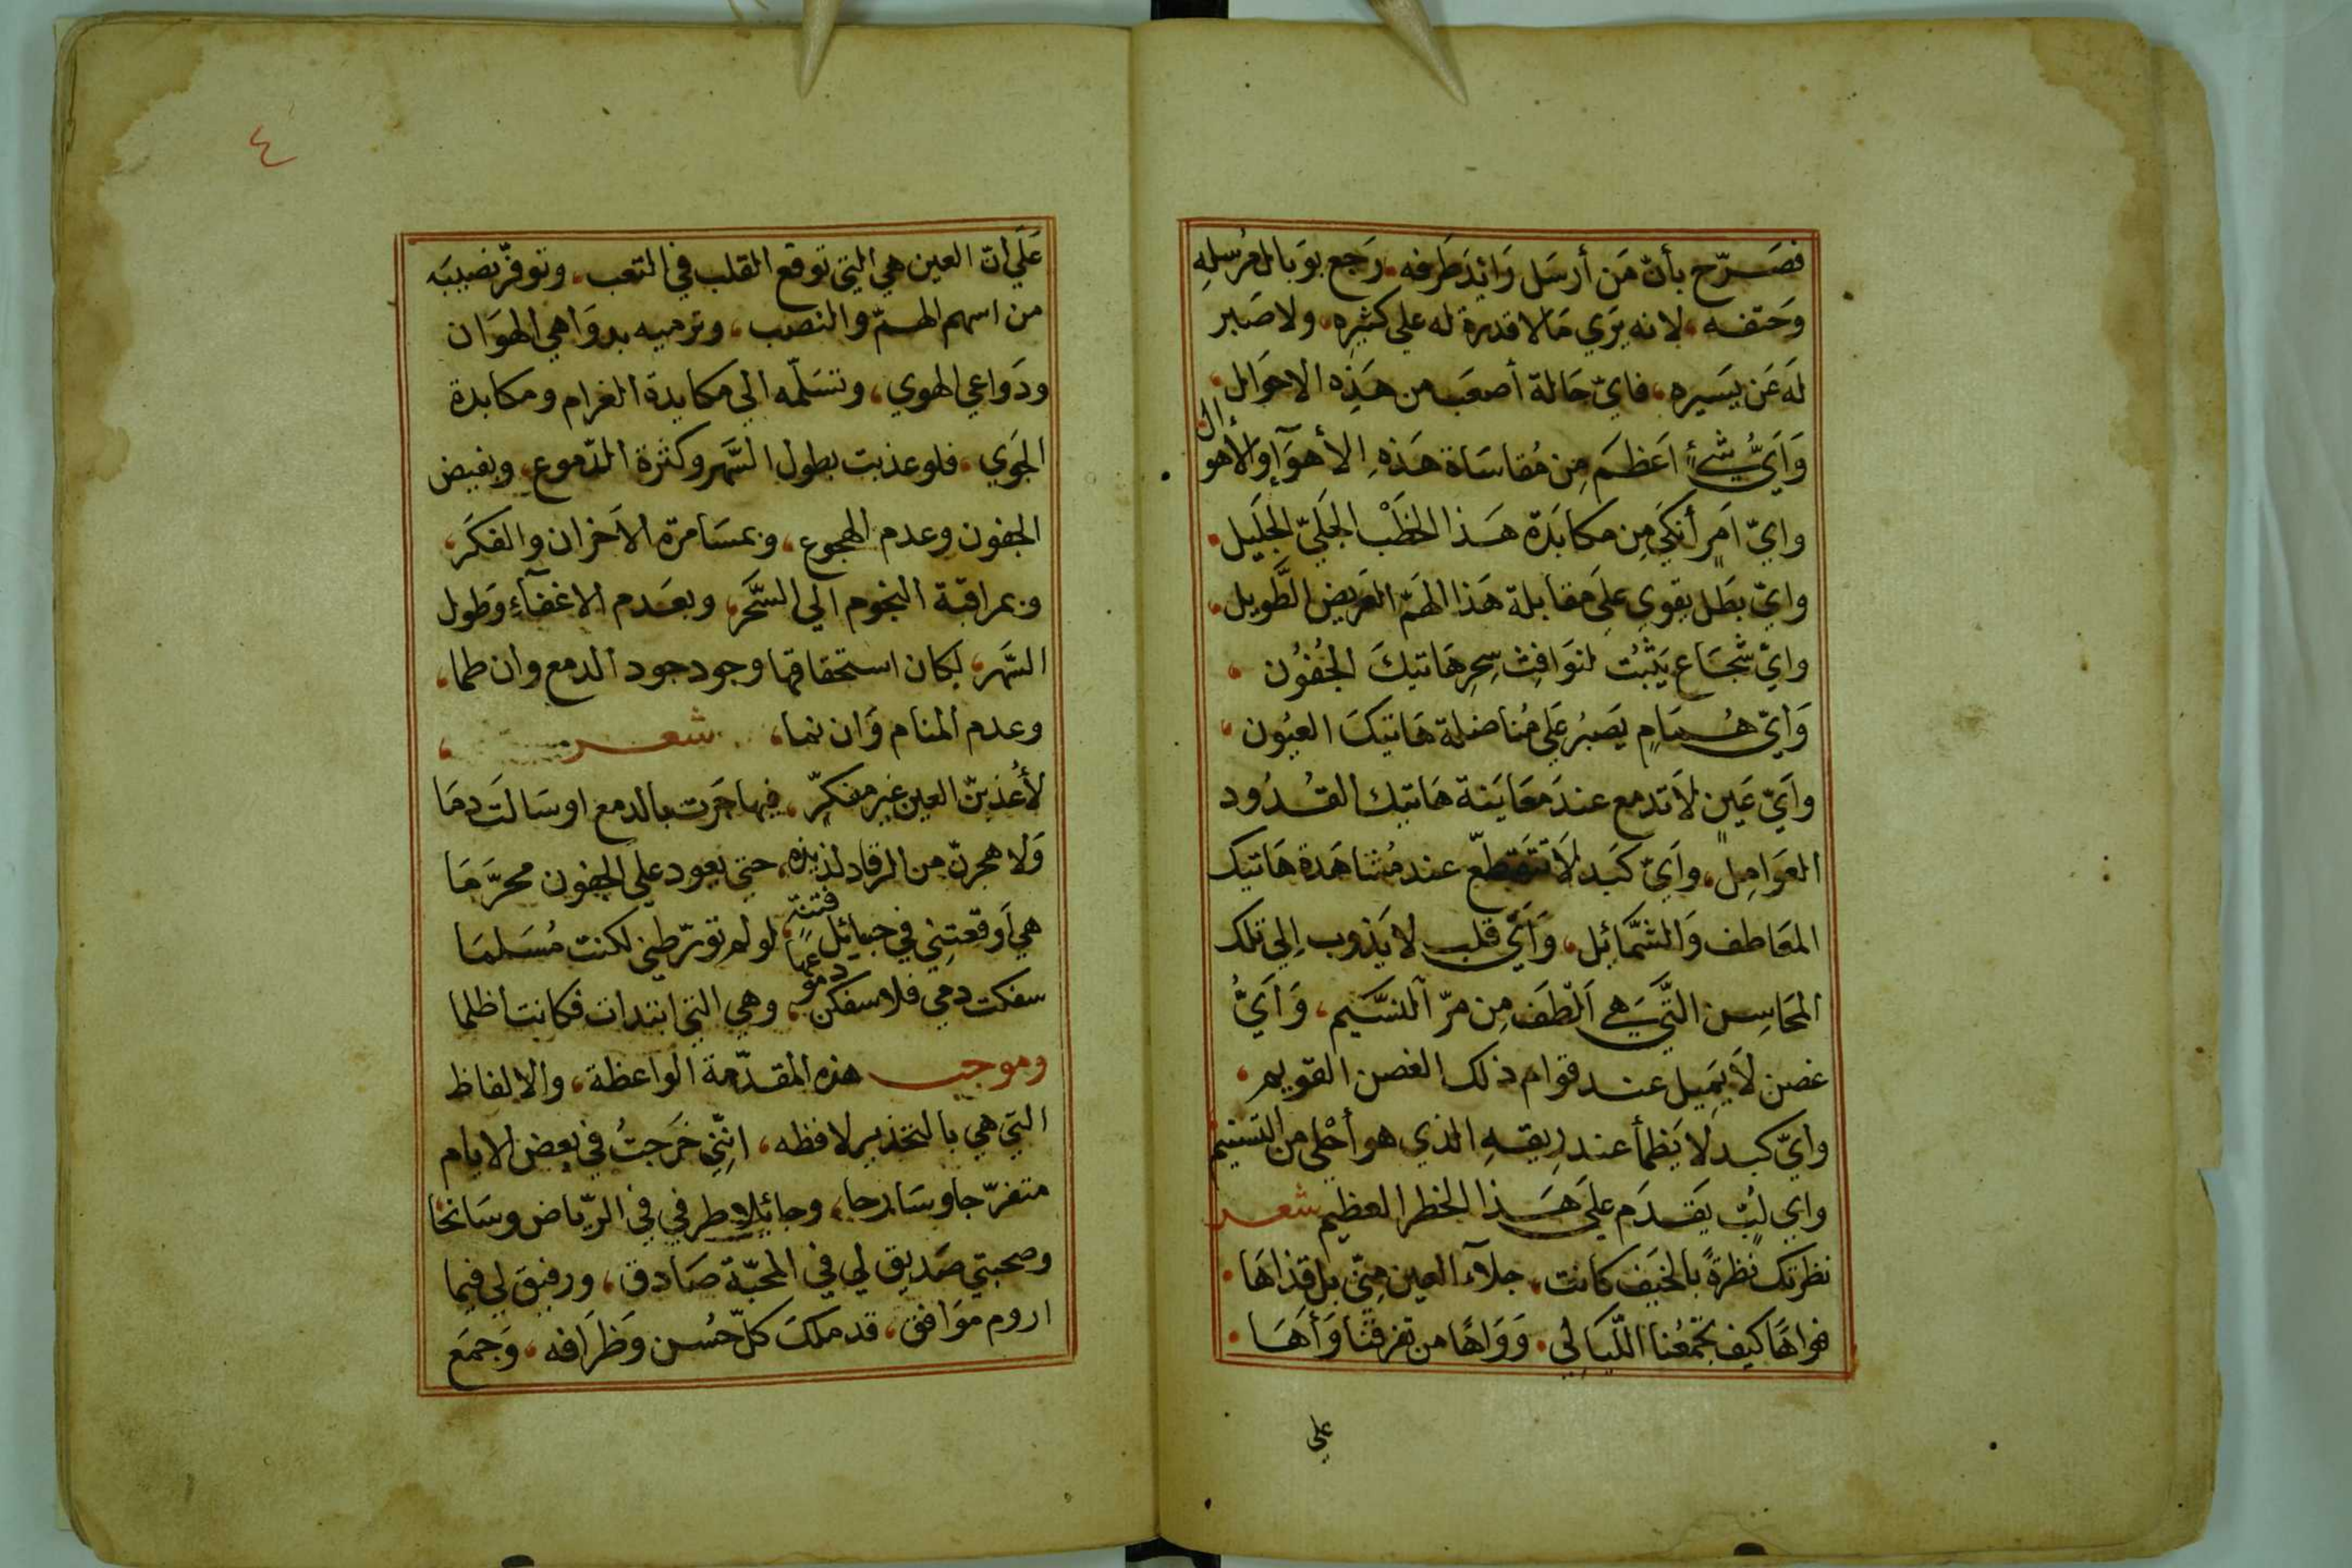 فصَرّح بأنّ مَن أرسَل رَائدَ طَرفه. رَجع بوَبال مُرْسلِهِ
وحَتفه، لانه يَرَي مَا لا قدرة له علي كثيرِه، ولا صَبر
لَه عَن يَسَيره، فايّ حَالة أصعَب من هَذِه الاحوَال،
وَايُّ شيءٍ اعَظمَ مِن مُقاسَاة هَذهِ الأهوَآءِ والاهوال
وايّ امَرٍ أنكَي مِن مكابَدَة هَذا الخطَبْ الجَليّ الجَليل.
وايّ بطَل يقوي علَي مقابلة هَذا الهَمّ العَريض الطَّويل.
وايّ شجَاع يَثبُت لنوَافِث سِحرِ هَاتيكَ الجُفوُن،
وَايّ هُمَامٍ يَصبُر عَلي مُناضلة هَاتيَكَ العيُون،
وأيّ عَينٍ لاَ تدمع عندَ معَايَنة هَاتيك القُدُود
العوَامِل، وأيّ كَبَد لاَ تتَقطّع عند مُشاهَدة هَاتيك
المعَاطف وَالشَّمَائِل، وَأيّ قَلب لا يَذوب إلي تلك
المَحَاسِن التَّي هي اَلْطَف مِن مرّ النسَّيم، وَايُّ
غصن لاَ يمَيِل عند قوام ذلك الغصن القويم،
وايّ كبد لا يَظمأ عند رِيقهِ الذي هو أحْلي من التسنيم
واي ليَثٍ يَقدَم علَي هَذا الخطر العظيم شعر
نظرتك نظرةً بالخيَف كانت، جلآء العين مِنيّ بل قذاهَا.
فواهًا كيف تجَمعُنا اللّيَالي. وَوَاهًا من تفرقنَا وَأهَا.
علي
٤
عَلَي انّ العين هي التي توقع القلب في التعب، وتوفرّ نصيبَه
من اسهم الهمّ والنصب، وترميه بدوَاهي الهوَان
ودَواعي الهوي، وتسَلّمه الي مكايدة الغرام ومكابدة
الجَوي، فلو عذبت بطول السَّهر وكثرة الدّموع، وبفيض
الجفون وعدم الهجوع، وبمسَامرة الاَحزان والفكَر،
وبمراقبة النجوم الي السَّحَر، وبعَدم الاغفآءِ وَطول
السَّهر، لكان استحقاقها وجود جود الدمع وان طما،
وعدم المنام وَان نما، شعر،
لأُعَذبنّ العين غير مفكرّ، فيها جَرَت بالدمع او سَالتَ دمَا
وَلاهجرنّ من الرقاد لذيذه، حتي يعود علي الجفون محرَّمَا
هي أَوقعَتِني في حبائل فتنة، لو لم تورّطني لكنت مُسَلمَا
سفكت دمي فلاسفكن دموعها، وهي التي ابتدات فكانت اظلما
وموجب هذه المقدّمة الواعظة، والالفاظ
التي هي بالتحذير لافظه، انِّني خَرَجتُ في بعض الايام
متفرّجا وسَارحا، وجائلا طرفي في الريّاض وسَانحا
وصحبتي صَديق لي في المحبّة صَادق، ورفيقَ لي فيما
اروم موَافق، قد ملكَ كلّ حُسن وَظرَافه، وَجمَع